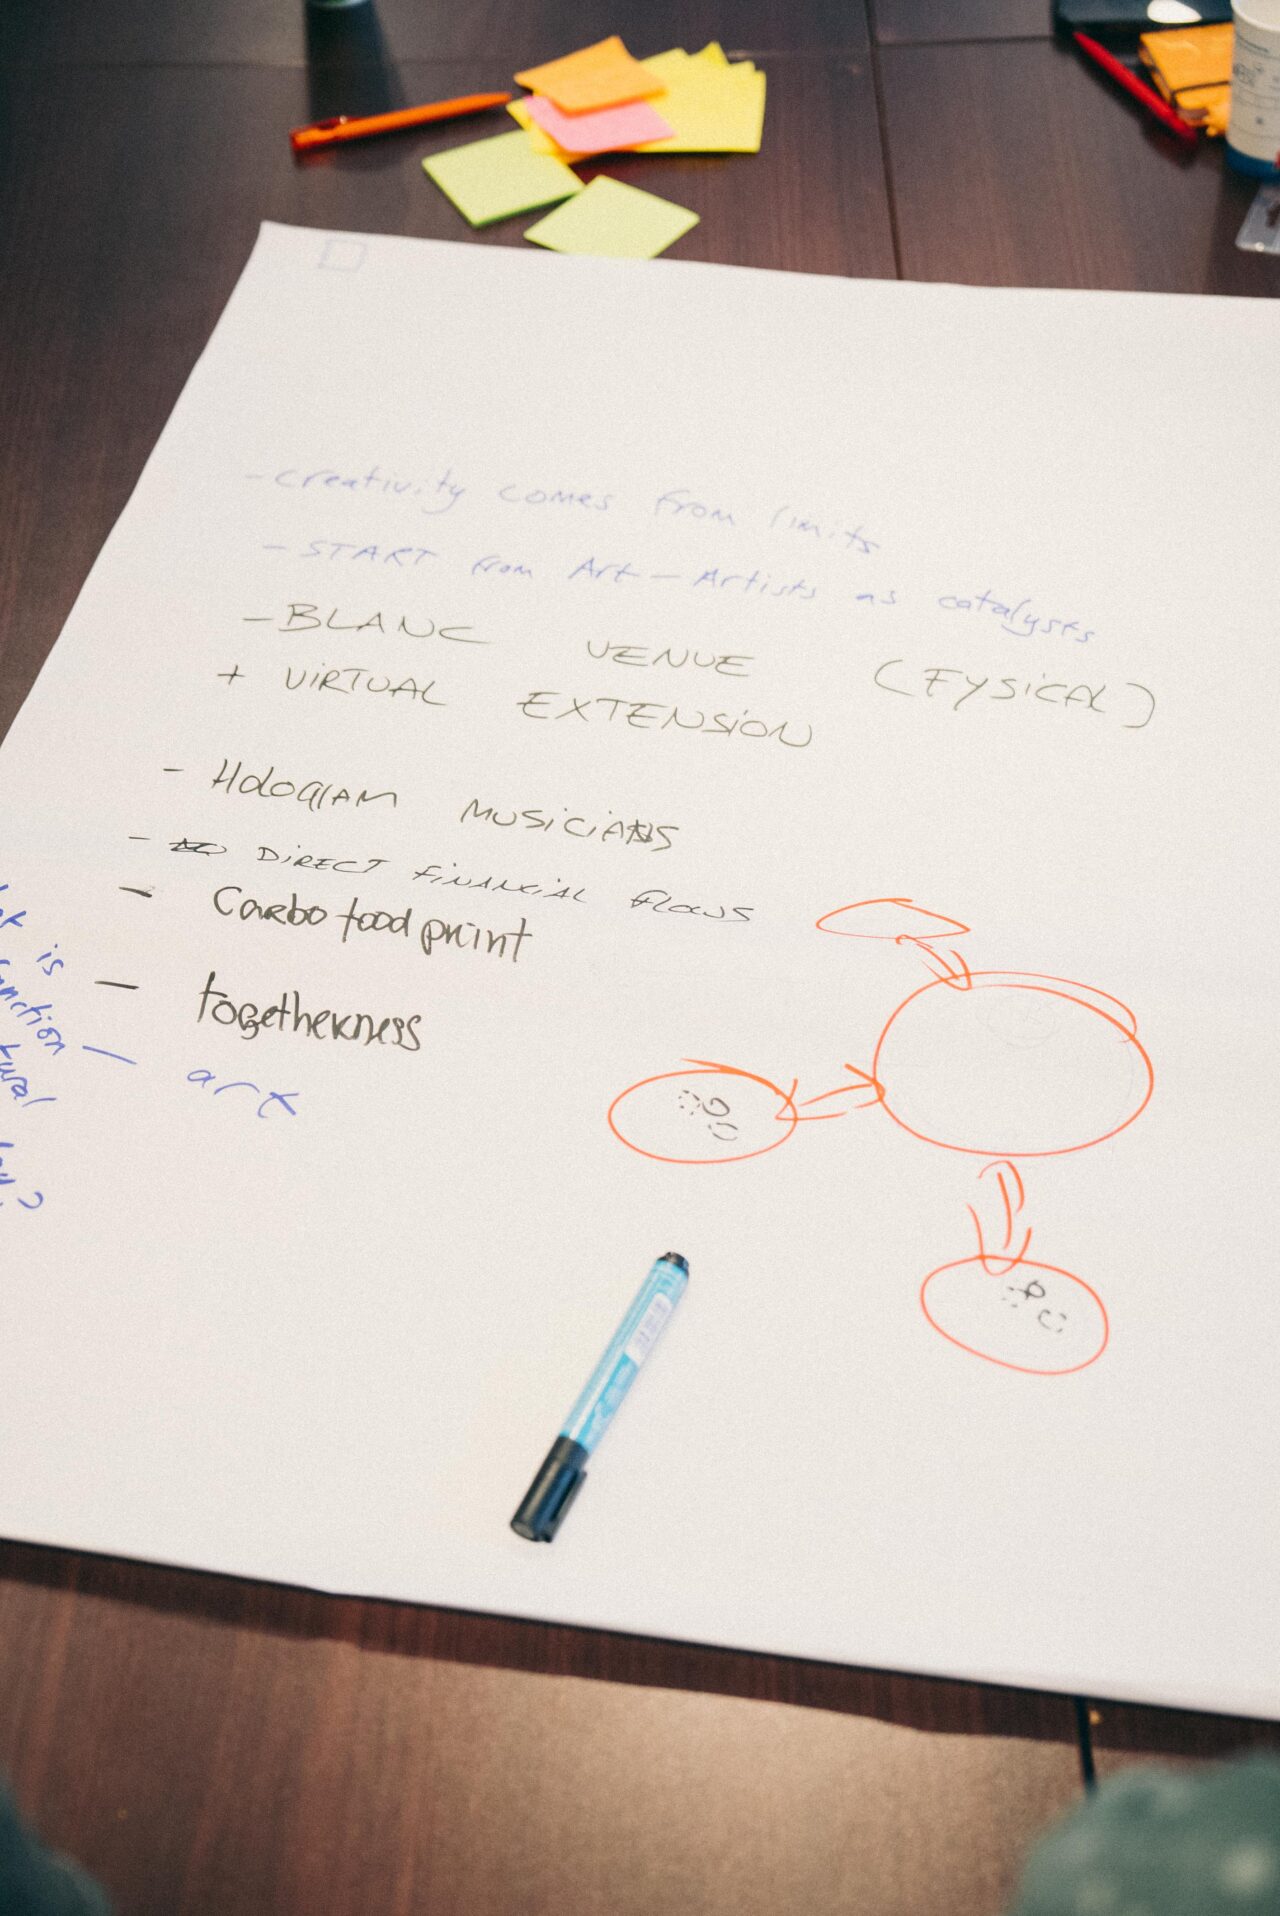 - Creativity comes from limits
- START from Art - Artists as catalysts
- BLANC VENUE (FYSICAL)
+ VIRTUAL EXTENSION
- HOLOGRAM MUSICIANS
- DIRECT FINANCIAL FLOWS
- Carbo foodprint
- togetherness
- art
is